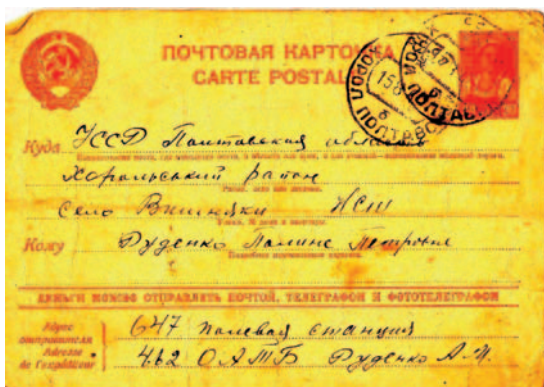 ПОЧТОВАЯ КАРТОЧКА
CARTE POSTALE
ХОРОЛ
158
б
ПОЛТАВС
ПОЛТАВ
Куда УССР Полтавская область
Хорольський район
Село Вишняки НСШ
Кому Руденко Полине Петровне
ДЕНЬГИ МОЖНО ОТПРАВЛЯТЬ ПОЧТОЙ, ТЕЛЕГРАФОМ И ФОТОТЕЛЕГРАФОМ
Адрес отправителя 647 полевая станция
Adresse de l'expéditeur 462 ОАТБ Руденко А.М.